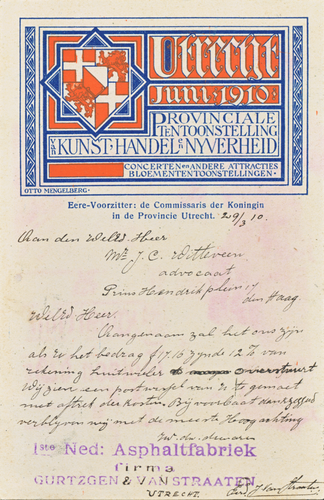 Utrecht
Juni-1910
Provinciale
Tentoonstelling
van Kunst-Handel en Nyverheid
Concerten en andere attracties
Bloemententoonstellingen.
Otto Mengelberg.
Eere-Voorzitter: de Commissaris der Koningin
in de Provincie Utrecht. 29/3 10.
Aan den WelEd Heer
Mr J. C. Witteveen
advocaat
Prins Hendrikplein 17
den Haag
WelEd Heer.
Aangenaam zal het ons zijn
als U het bedrag f 17.16 zynde 12% van
rekening overstuurt
Wij zien een postwissel van U te gemoet
met aftrek der kosten. Bij voorbaat dankzeggend
verblyven wij met de meeste Hoogachting
Uw dw. dienaren
1ste Ned: Asphaltfabriek
firma
GURTZGEN & VAN STRAATEN
UTRECHT